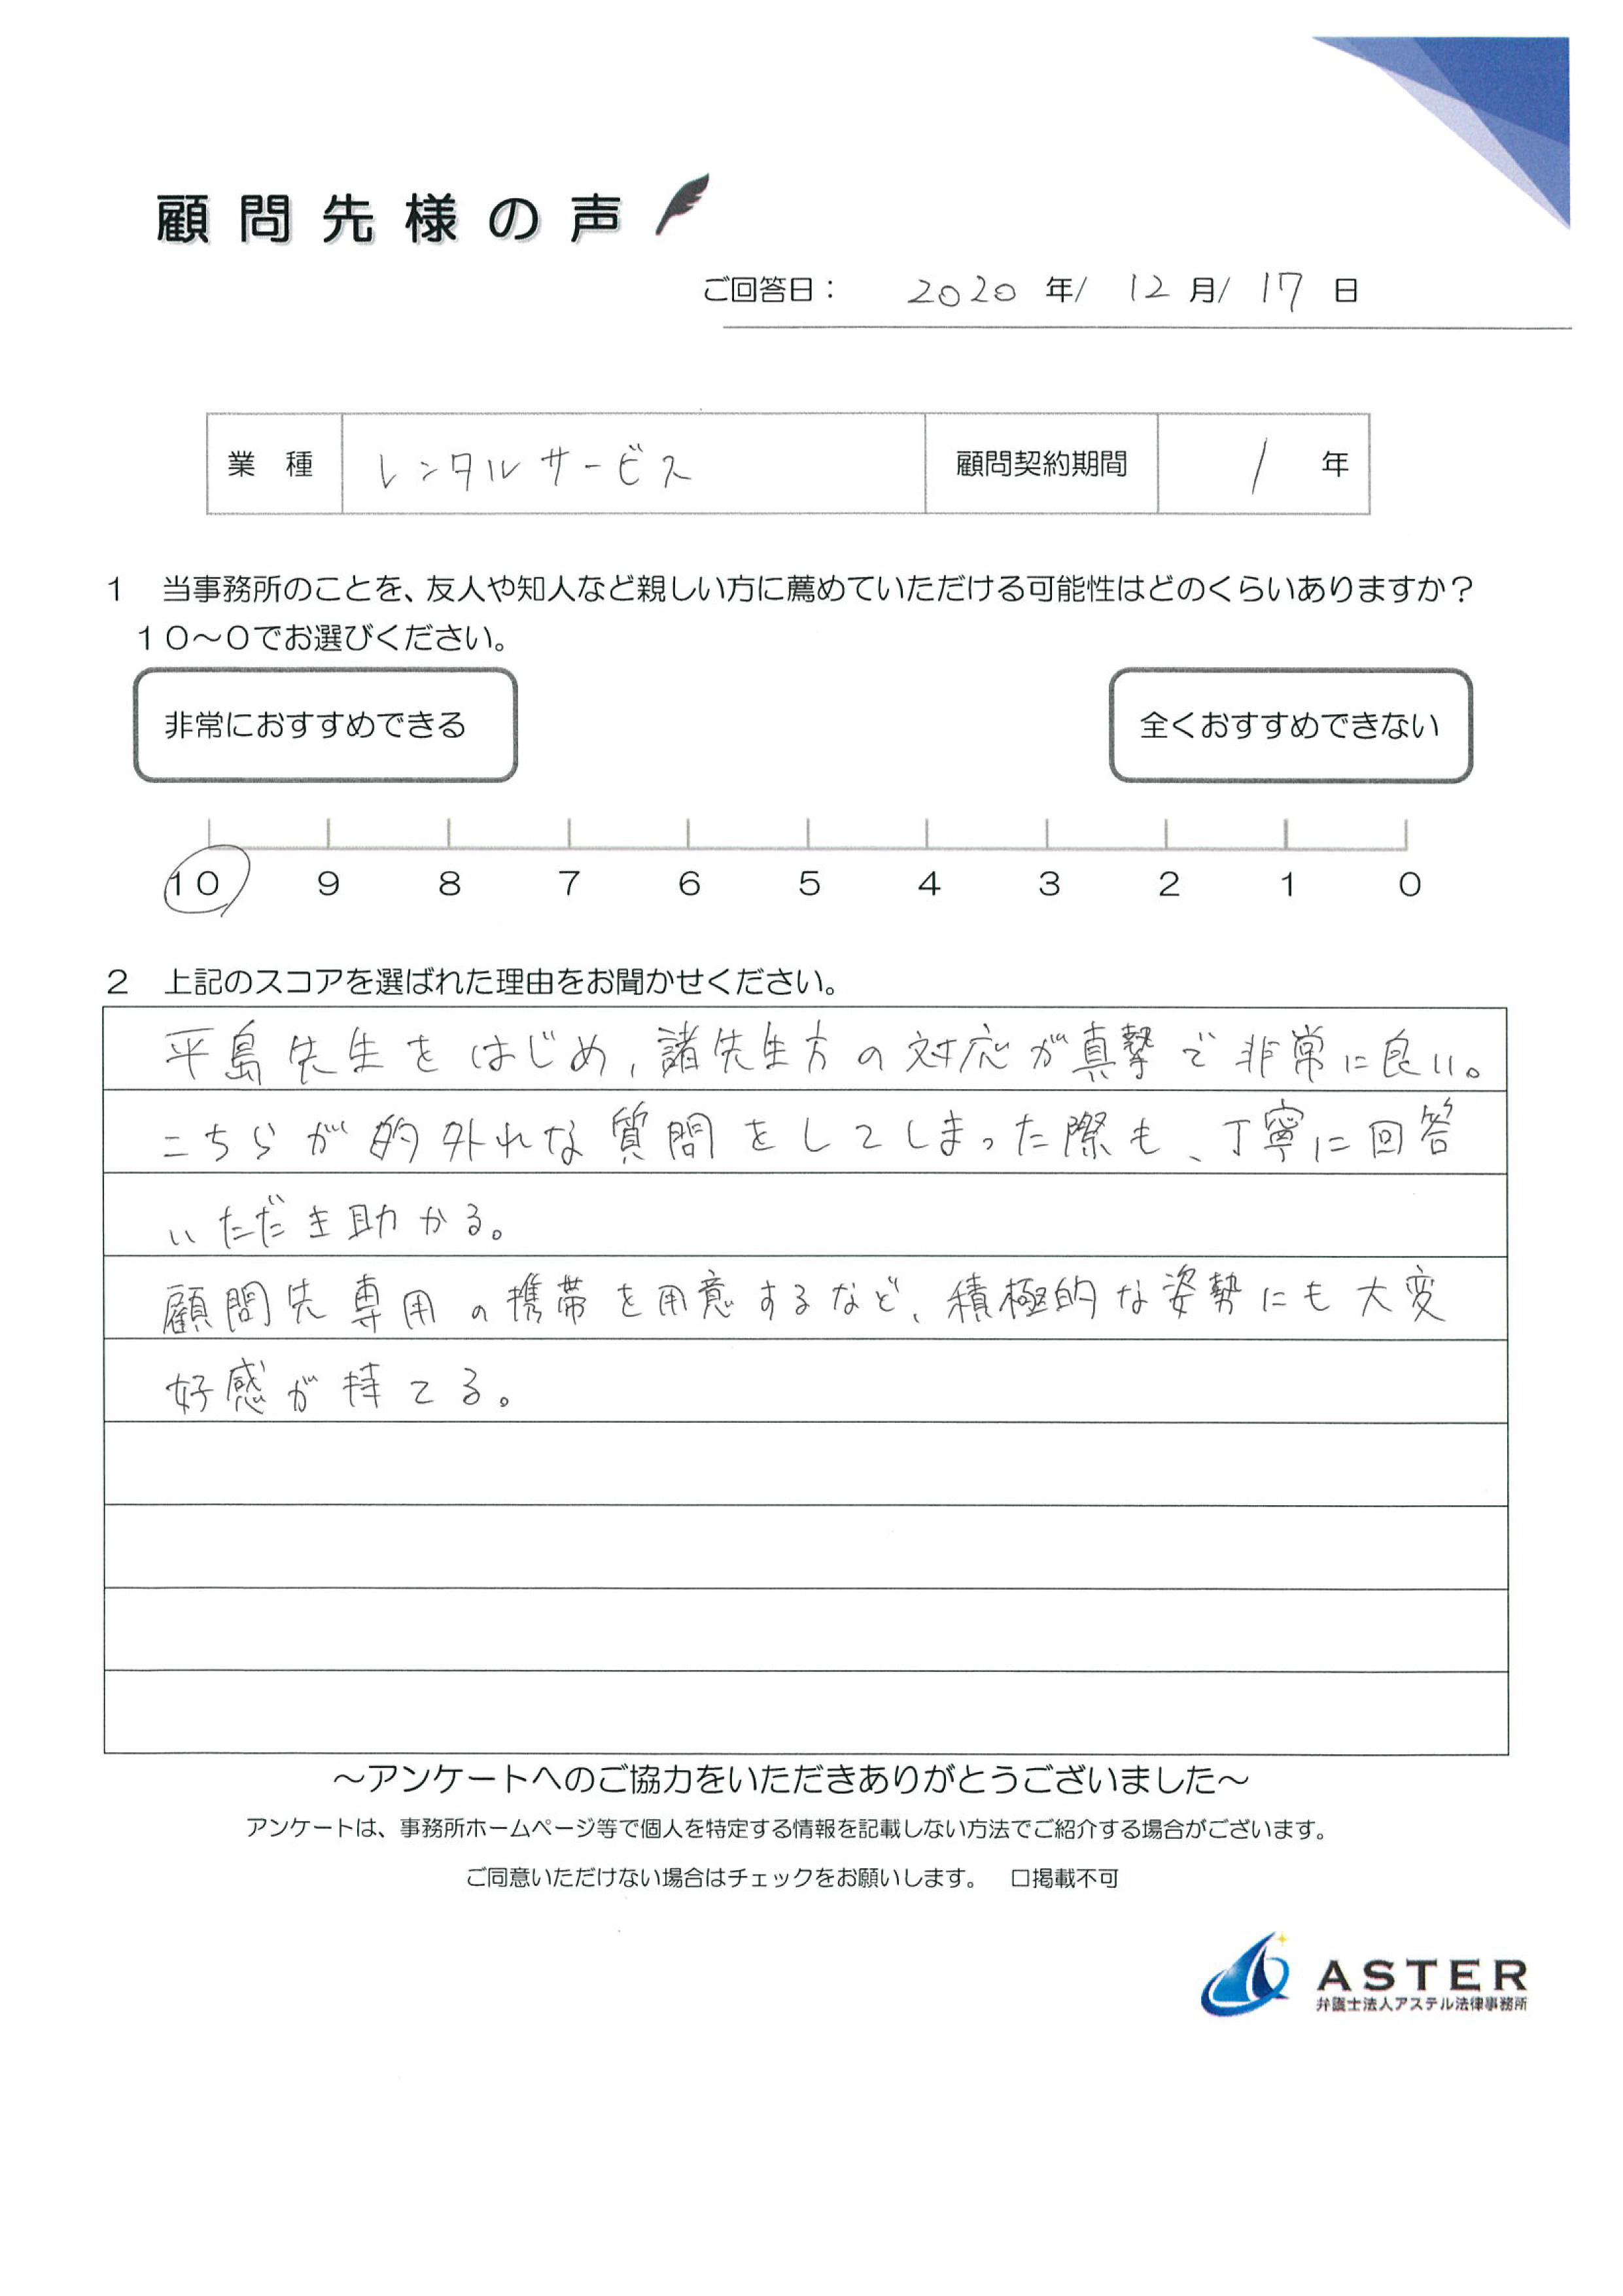 顧問先様の声
ご回答日： 2020 年/ 12 月/ 17 日
業 種 レンタルサービス 顧問契約期間 1 年
１ 当事務所のことを、友人や知人など親しい方に薦めていただける可能性はどのくらいありますか？
１０～０でお選びください。
非常におすすめできる 全くおすすめできない
10 9 8 7 6 5 4 3 2 1 0
２ 上記のスコアを選ばれた理由をお聞かせください。
平島先生をはじめ、諸先生方の対応が真摯で非常に良い。
こちらが的外れな質問をしてしまった際も、丁寧に回答
いただき助かる。
顧問先専用の携帯を用意するなど、積極的な姿勢にも大変
好感が持てる。
～アンケートへのご協力をいただきありがとうございました～
アンケートは、事務所ホームページ等で個人を特定する情報を記載しない方法でご紹介する場合がございます。
ご同意いただけない場合はチェックをお願いします。 □掲載不可
ASTER
弁護士法人アステル法律事務所